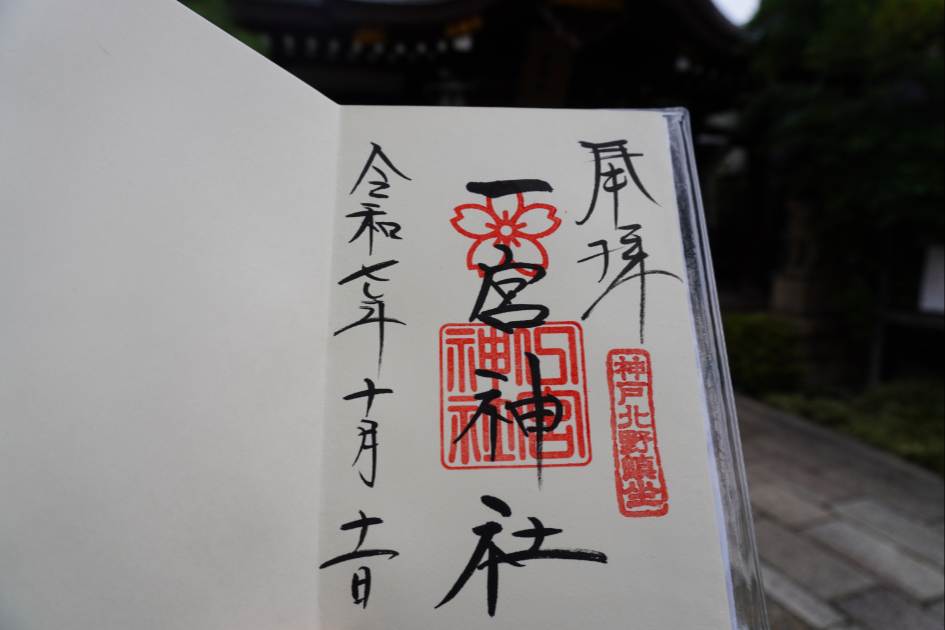 奉拝
神戸北野鎮坐
一宮神社
宮
神社
令和七年十月十一日